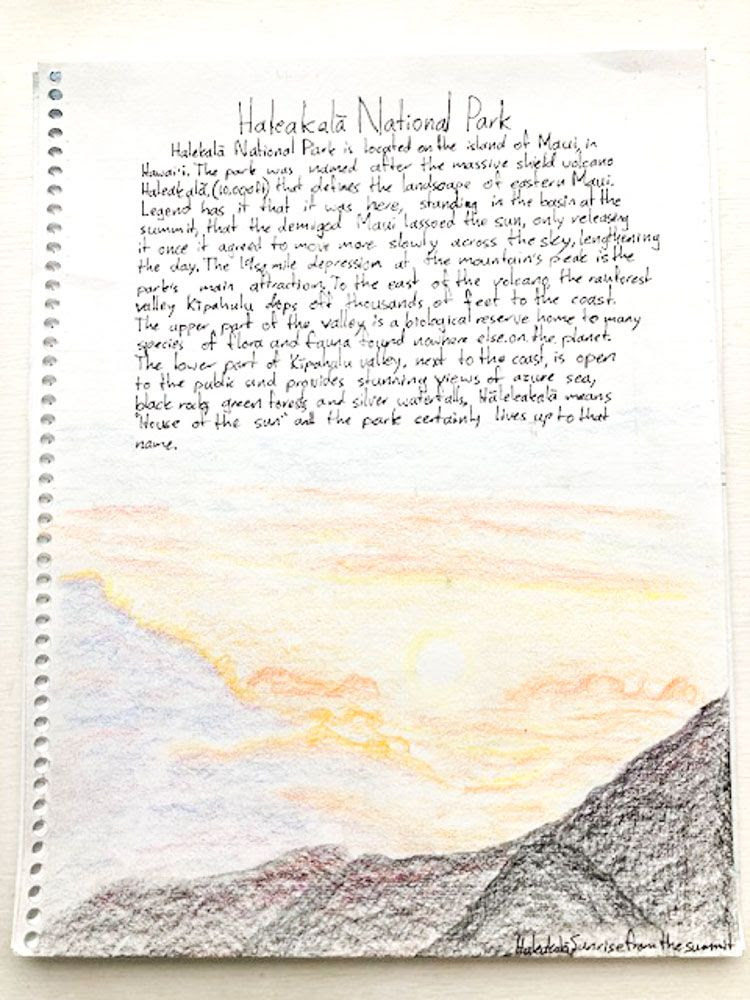 Haleakalā National Park
Halekalā National Park is located on the island of Maui, in
Hawai'i. The park was named after the massive shield volcano
Haleakalā, (10,000ft) that defines the landscape of eastern Maui.
Legend has it that it was here, standing in the basin at the
summit, that the demigod Maui lassoed the sun, only releasing
it once it agreed to move more slowly across the sky, lengthening
the day. The mile depression at the mountain's peak is the
park's main attraction. To the east of the volcano, the rainforest
valley Kīpahulu drops off thousands of feet to the coast.
The upper part of the valley is a biological reserve home to many
species of flora and fauna found nowhere else on the planet.
The lower part of Kīpahulu valley, next to the coast, is open
to the public and provides stunning views of azure sea,
black rocks, green forests and silver waterfalls. Hāleleakalā means
"House of the sun" and the park certainly lives up to that
name.
Haleakalā, Sunrise from the summit